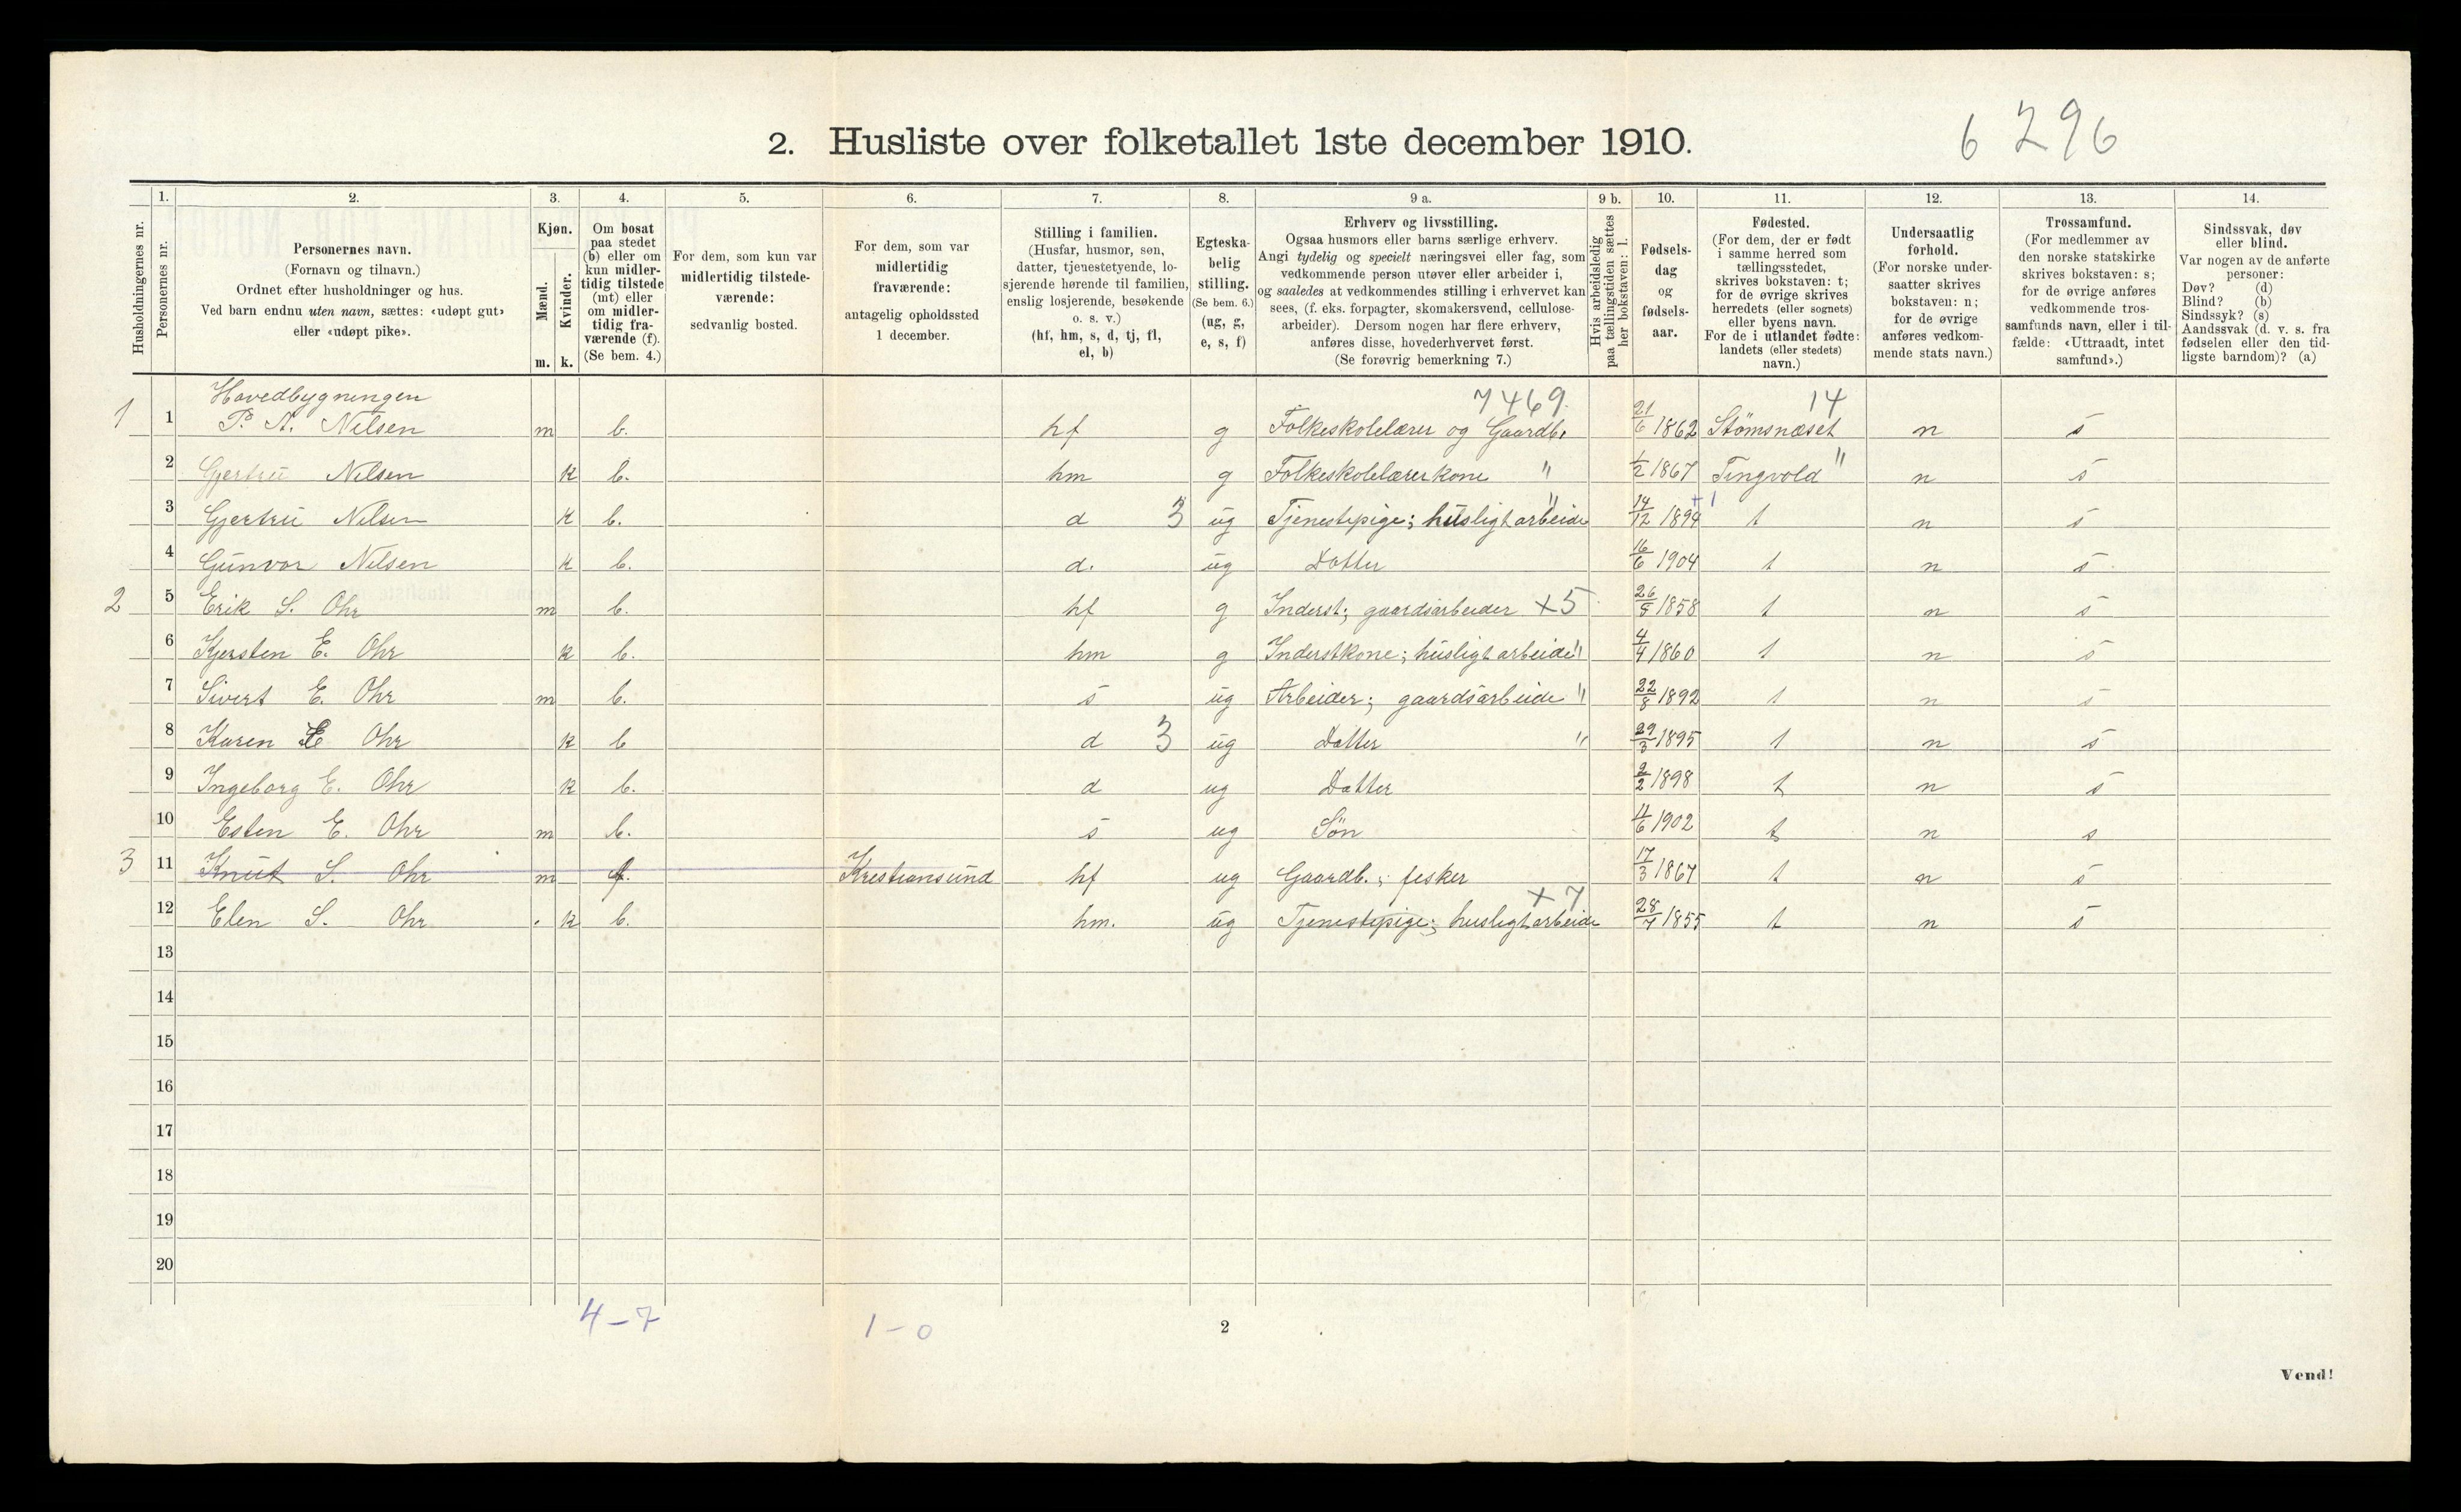 2. Husliste over folketallet 1ste december 1910.
6 296
1. 2. 3. 4. 5. 6. 7. 8. 9 a. 9 b. 10. 11. 12. 13. 14.
Husholdningernes nr.
Personernes nr.
Personernes navn.
(Fornavn og tilnavn.)
Ordnet efter husholdninger og hus.
Ved barn endnu uten navn, sættes: «udøpt gut»
eller «udøpt pike».
Kjøn.
Mænd.
Kvinder.
m. k.
Om bosat
paa stedet
(b) eller om
kun midler-
tidig tilstede
(mt) eller
om midler-
tidig fra-
værende (f).
(Se bem. 4.)
For dem, som kun var
midlertidig tilstede-
værende:
sedvanlig bosted.
For dem, som var
midlertidig
fraværende:
antagelig opholdssted
1 december.
Stilling i familien.
(Husfar, husmor, søn,
datter, tjenestetyende, lo-
sjerende hørende til familien,
enslig losjerende, besøkende
o. s. v.)
(hf, hm, s, d, tj, fl,
el, b)
Egteska-
belig
stilling.
(Se bem. 6.)
(ug, g,
e, s, f)
Erhverv og livsstilling.
Ogsaa husmors eller barns særlige erhverv.
Angi tydelig og specielt næringsvei eller fag, som
vedkommende person utøver eller arbeider i,
og saaledes at vedkommendes stilling i erhvervet kan
sees, (f. eks. forpagter, skomakersvend, cellulose-
arbeider). Dersom nogen har flere erhverv,
anføres disse, hovederhvervet først.
(Se forøvrig bemerkning 7.)
Hvis arbeidsledig
paa tællingstiden sættes
her bokstaven: l.
Fødsels-
dag
og
fødsels-
aar.
Fødested.
(For dem, der er født
i samme herred som
tællingsstedet,
skrives bokstaven: t;
for de øvrige skrives
herredets (eller sognets)
eller byens navn.
For de i utlandet fødte:
landets (eller stedets)
navn.)
Undersaatlig
forhold.
(For norske under-
saatter skrives
bokstaven: n;
for de øvrige
anføres vedkom-
mende stats navn.)
Trossamfund.
(For medlemmer av
den norske statskirke
skrives bokstaven: s;
for de øvrige anføres
vedkommende tros-
samfunds navn, eller i til-
fælde: «Uttraadt, intet
samfund».)
Sindssvak, døv
eller blind.
Var nogen av de anførte
personer:
Døv? (d)
Blind? (b)
Sindssyk? (s)
Aandssvak (d. v. s. fra
fødselen eller den tid-
ligste barndom)? (a)
Hovedbygningen 7469. 14
1 1 P. A. Nilsen m b. hf g Folkeskolelærer og Gaardb. 21/6 1862 Stømsnæset n s
2 Gjertru Nilsen k b. hm g Folkeskolelærerkone " 1/2 1867 Tingvold " n s
3 Gjertru Nilsen k b. d 3 ug Tjenestepige; husligt arbeide " 14/12 1894 t n s
4 Gunvor Nilsen k b. d. ug Datter 16/6 1904 t n s
2 5 Erik S. Ohr m b. hf g Inderst; gaardsarbeider +5 26/5 1858 t n s
6 Kjersten E. Ohr k b. hm g Inderstkone; husligt arbeide " 4/4 1860 t n s
7 Sivert E. Ohr m b. s ug Arbeider; gaardsarbeide " 22/8 1892 t n s
8 Karen E Ohr k b d 3 ug Datter " 29/3 1895 t n s
9 Ingeborg E. Ohr k b. d ug Datter 2/2 1898 t n s
10 Esten E. Ohr m b. s ug Søn 11/6 1902 t n s
3 11 Knut S. Ohr m f. Krestiansund hf ug Gaardb.; fisker 17/3 1867 t n s
12 Elen S. Ohr k b. hm. ug Tjenestepige; husligt arbeide +7 28/7 1855 t n s
13
14
15
16
17
18
19
20
4-7 1-0
2
Vend!